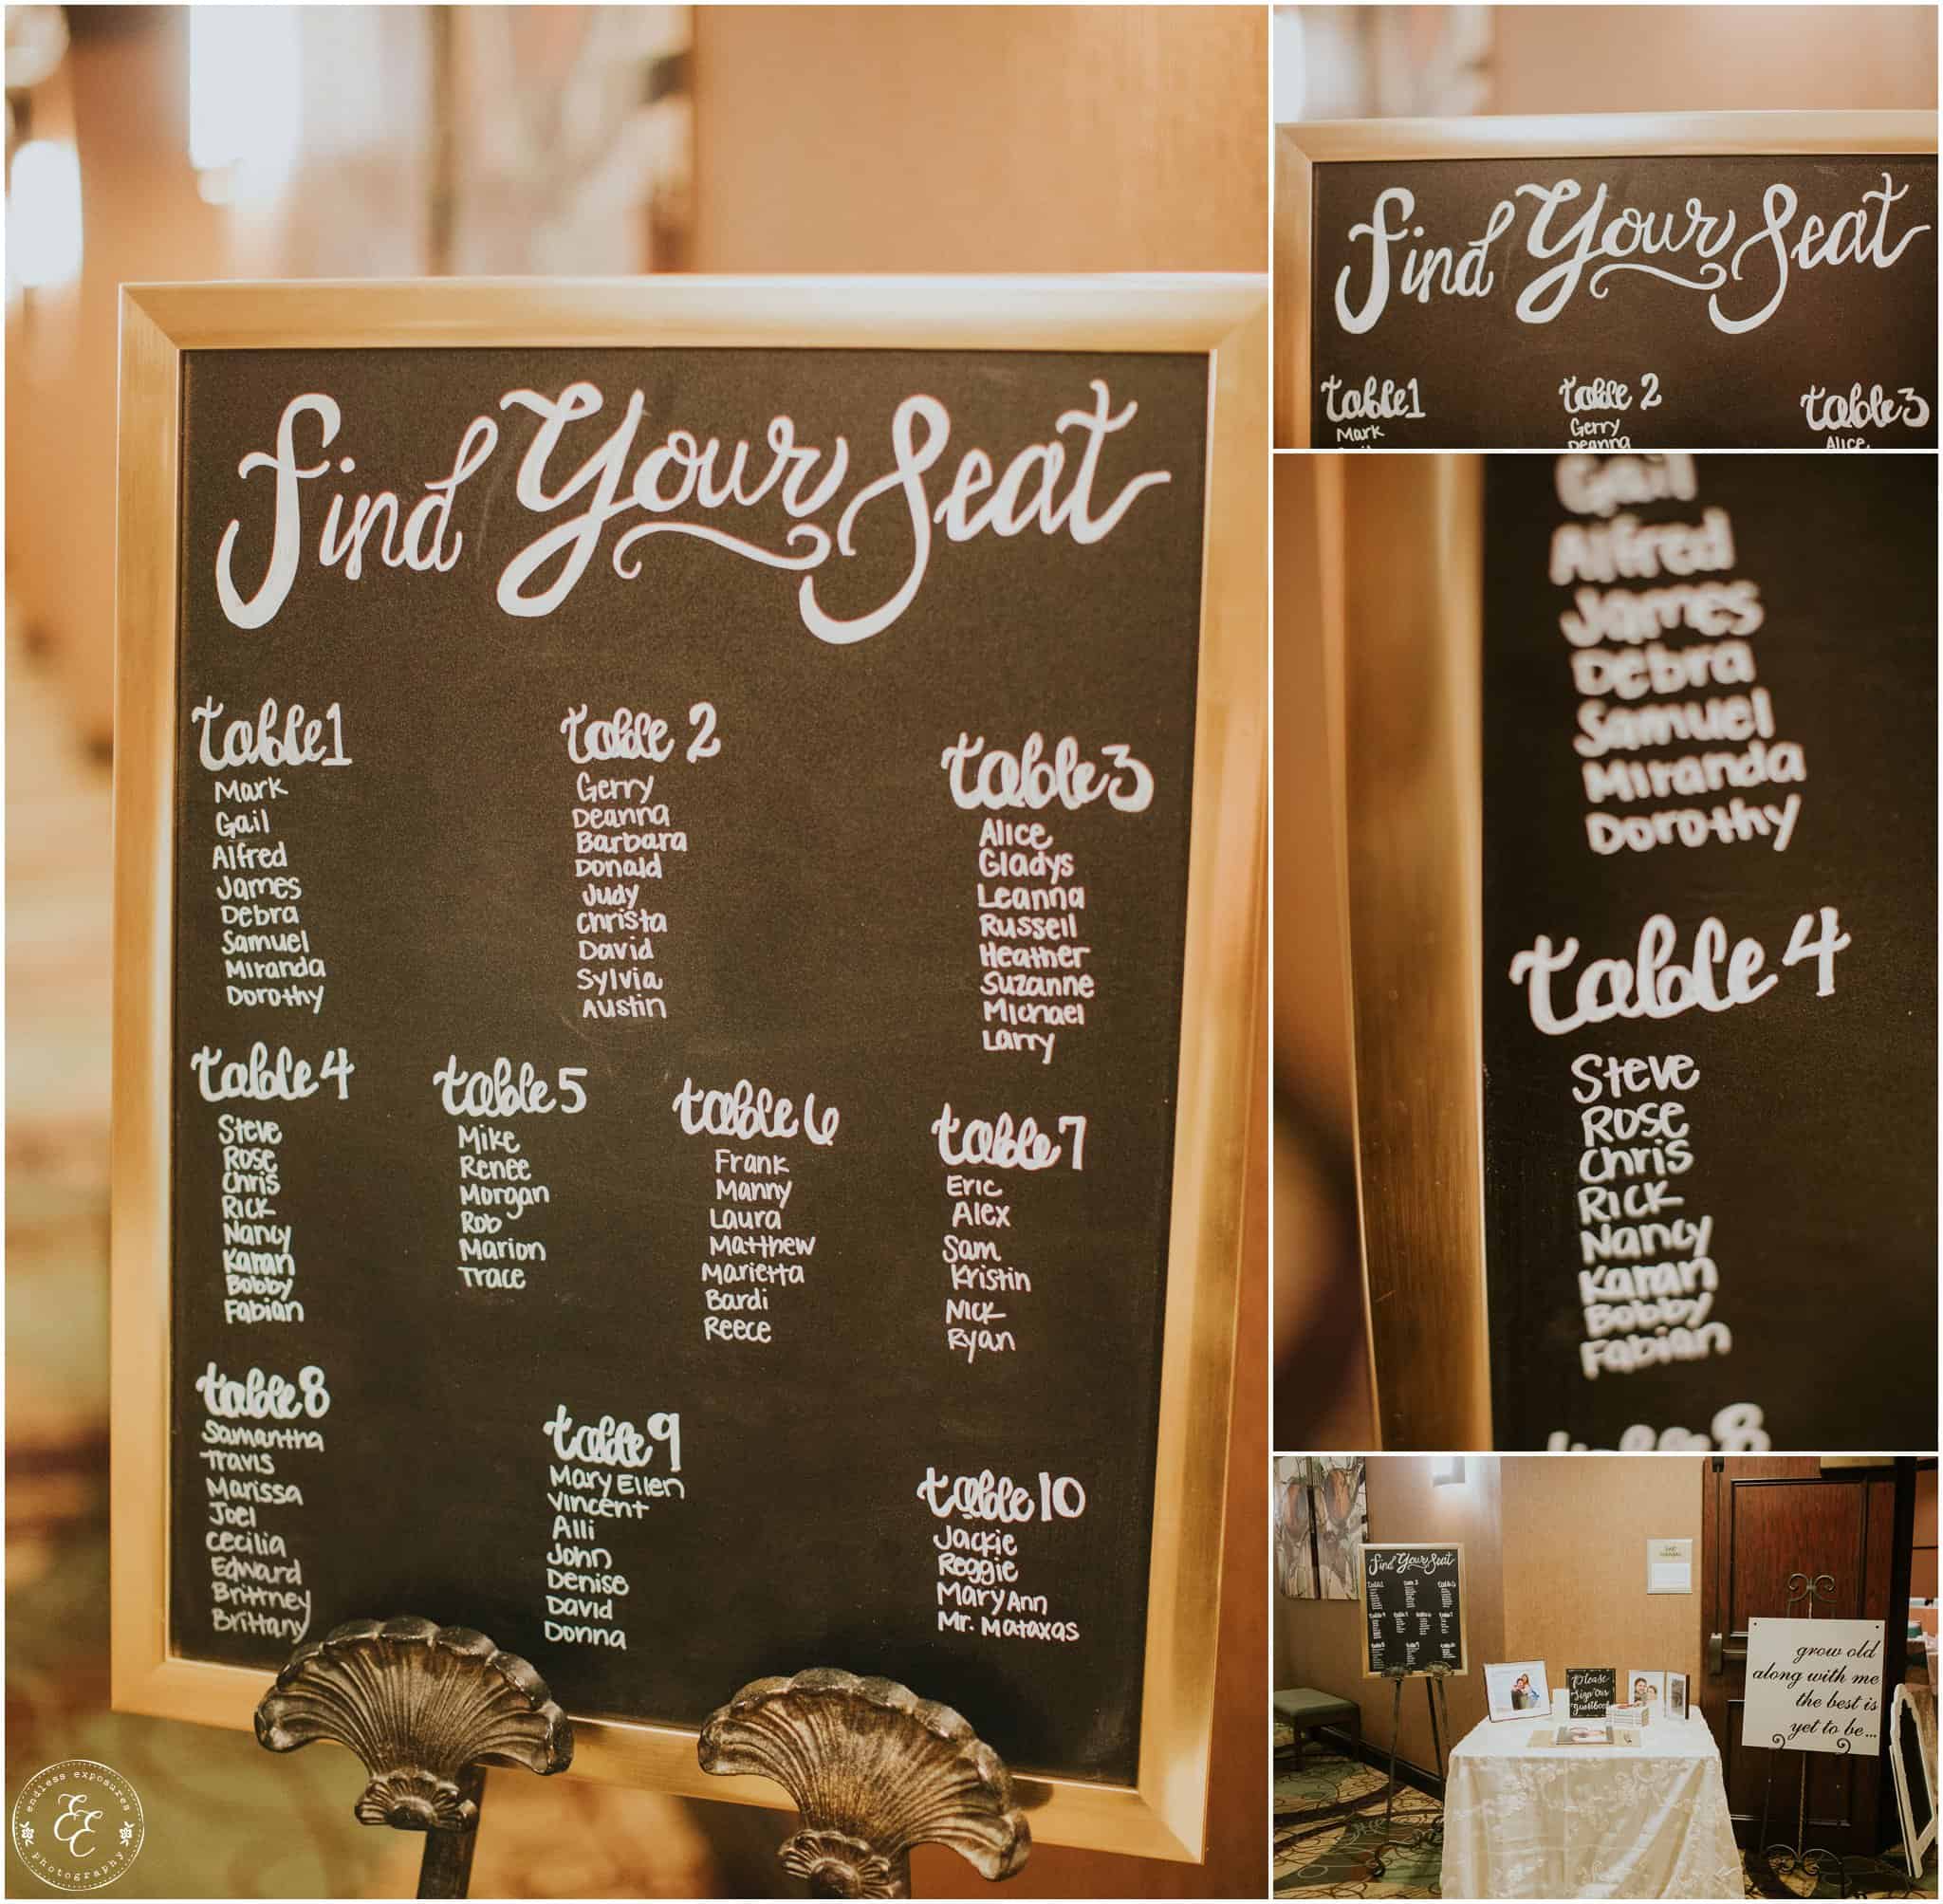 Find Your Seat
table 1
Mark
Gail
Alfred
James
Debra
Samuel
Miranda
Dorothy
table 2
Gerry
Deanna
Barbara
Donald
Judy
Christa
David
Sylvia
Austin
table 3
Alice
Gladys
Leanna
Russell
Heather
Suzanne
Michael
Larry
table 4
Steve
Rose
Chris
Rick
Nancy
Karan
Bobby
Fabian
table 5
Mike
Renee
Morgan
Rob
Marion
Trace
table 6
Frank
Manny
Laura
Matthew
Marietta
Bardi
Reece
table 7
Eric
Alex
Sam
Kristin
Nick
Ryan
table 8
Samantha
Travis
Marissa
Joel
Cecilia
Edward
Brittney
Brittany
table 9
Mary Ellen
Vincent
Alli
John
Denise
David
Donna
table 10
Jackie
Reggie
Mary Ann
Mr. Mataxas
endless exposures
EE
photography
Find Your Seat
table 1
Mark
table 2
Gerry
Deanna
table 3
Alice
Gail
Alfred
James
Debra
Samuel
Miranda
Dorothy
table 4
Steve
Rose
Chris
Rick
Nancy
Karan
Bobby
Fabian
table 8
Find Your Seat
Please
sign our
guestbook
grow old
along with me
the best is
yet to be...